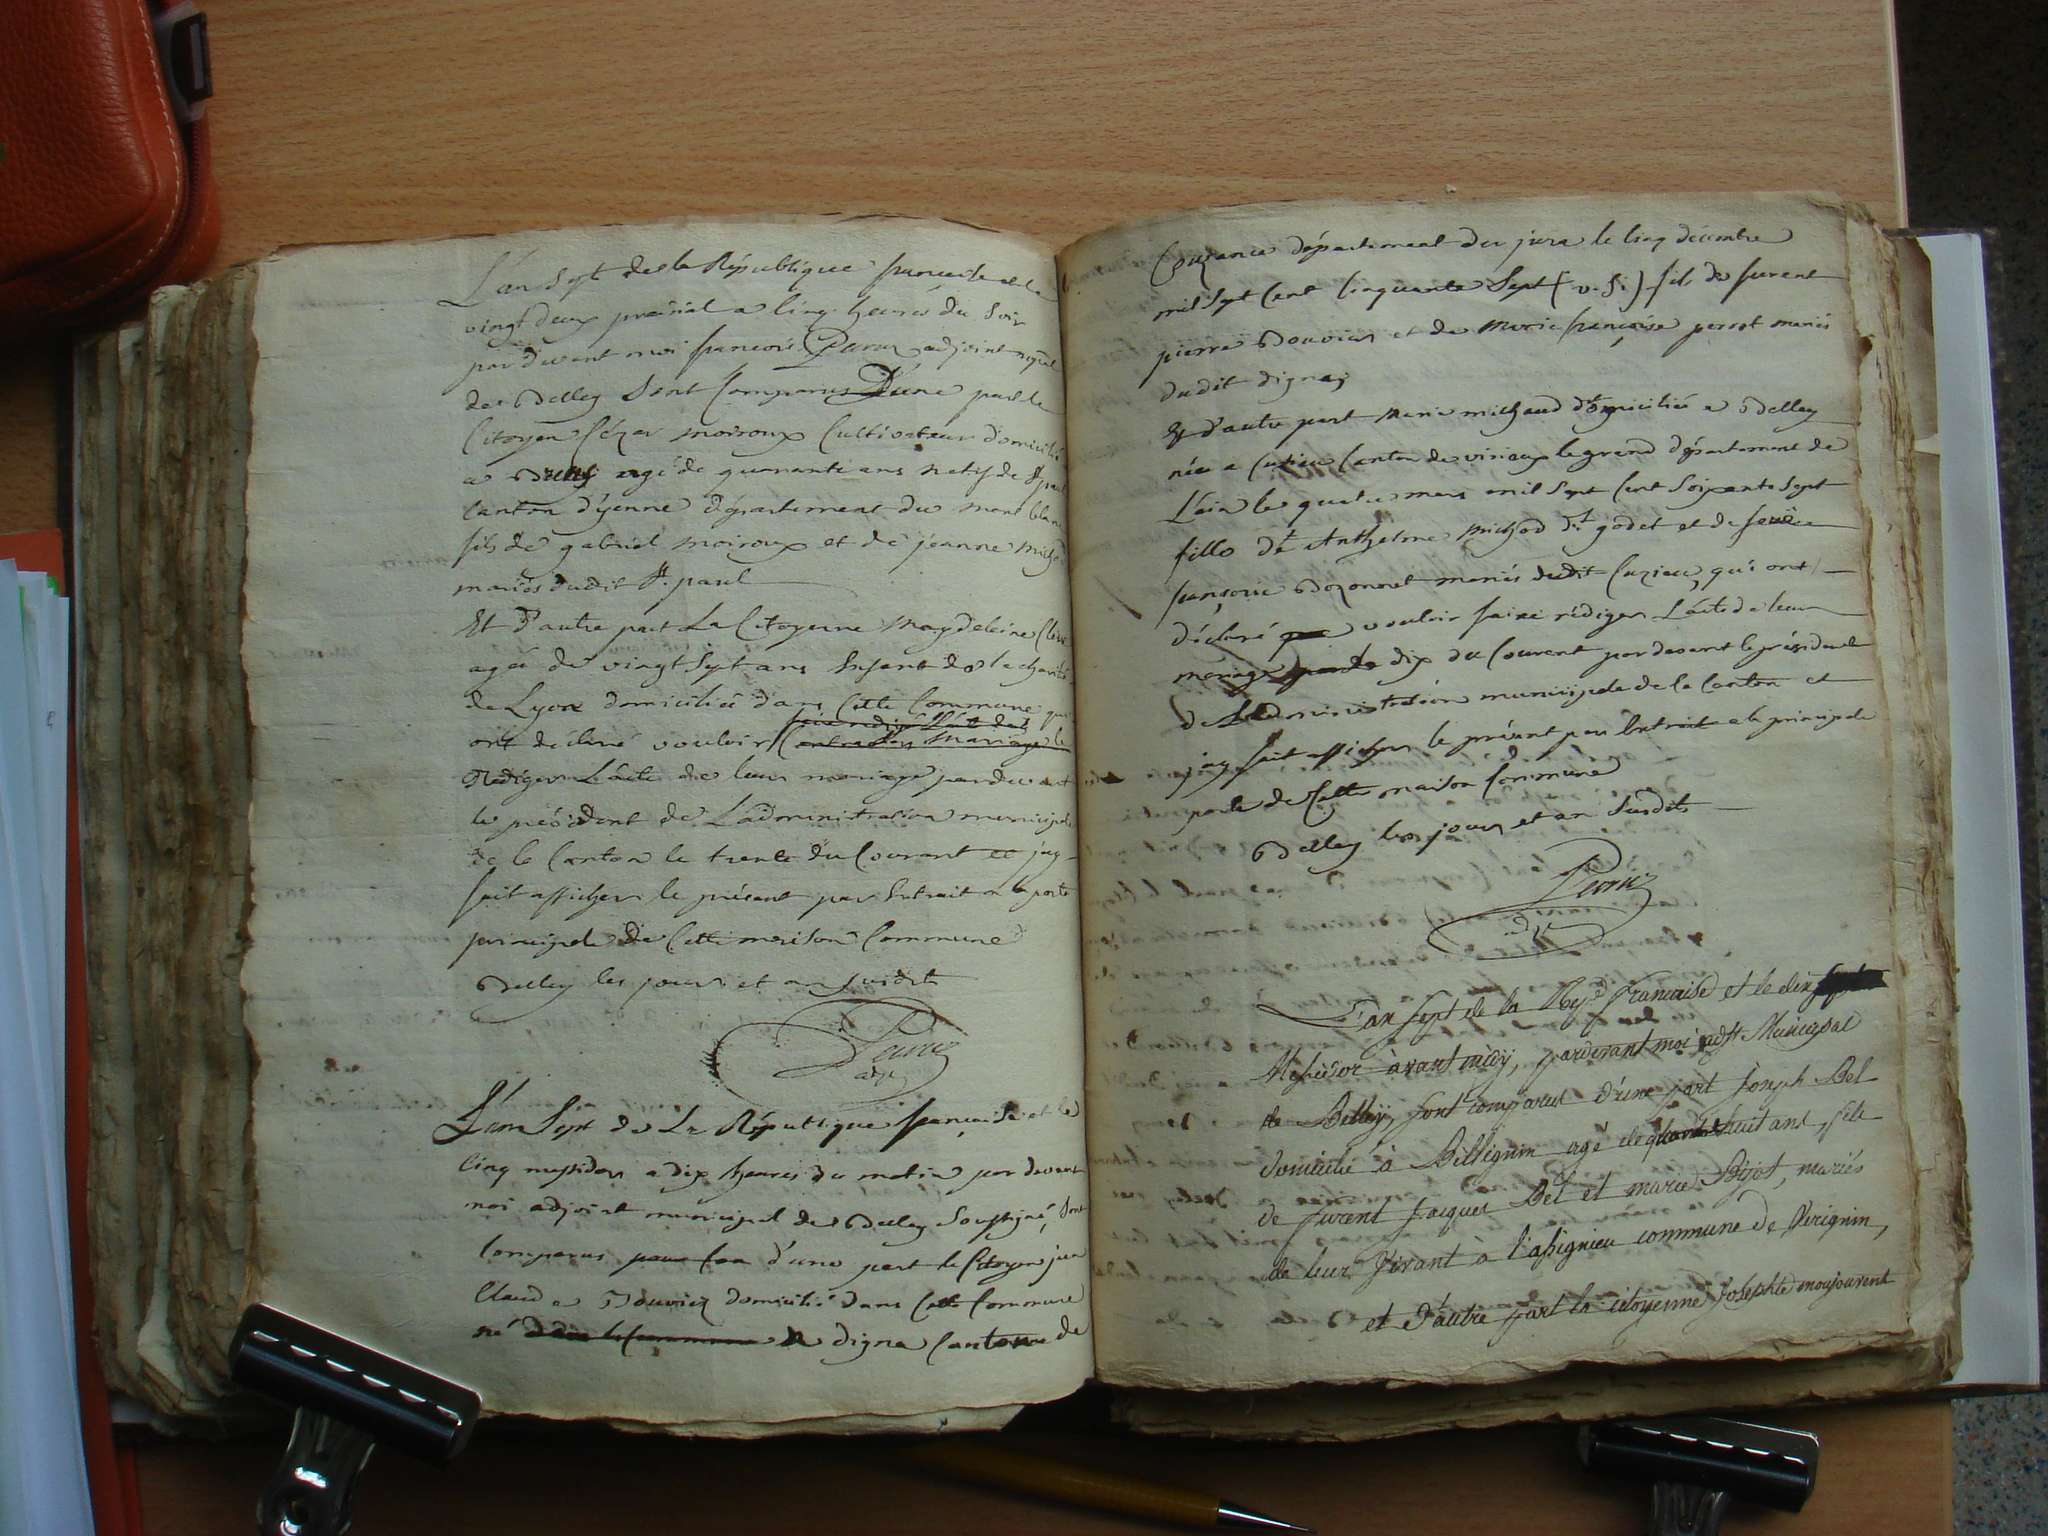 L'an Sept de la République francaise et le
vingt deux prairial a cinq heures du Soir
par devant moi francois adjoint
de Belley Sont Comparus D'une part le
Citoyen Cézar moiroux Cultivateur domicilié
a Belley agé de quarante ans natif de St paul
Canton d'yenne département du mont blanc
fils de gabriel moiroux et de jeanne
mariés dudit St. paul
Et d'autre part La Citoyenne Magdeleine
agée de vingt Sept ans Enfant de la charité
de Lyon domiciliée dans Cette Commune qui
faire rediger l'acte de
ont declaré vouloir Contracter Mariage le
Rediger L'acte de leur mariage pardevant
le président de L'administration municipale
de le Canton le trente du Courant et jay
fait afficher le présent par Extrait a la porte
principale de Cette maison Commune
Belley les jours et an susdits
adjt
L'an Sept de La République française et le
cinq messidor a dix heures du matin par devant
moi adjoint municipal de Belley Soussigné, Sont
Comparus d'une part le Citoyen jean
Claude Bouvier domicilié dans Cette Commune
né dans la Commune de digna Canton de
Couzance département du jura le cinq décembre
mil Sept Cent Cinquante Sept (v. S.) fils de furent
pierre Bouvier et de marie françoise perrot mariés
dudit digna;
Et d'autre part marie michaud domiciliée a Belley
née a Cuzieu Canton de virieux le grand département de
L'ain le quatre mars mil Sept Cent Soixante Sept
fille de Anthelme michod dt godet et de feue
françoise Bozonnet mariés dudit Cuzieu, qui ont
déclaré que vouloir faire rédiger L'acte de leur
mariage dix du Courent par devant le président
de L'administration municipale de le Canton et
jay fait afficher le présent par Extrait a la principale
porte de Cette maison Commune
Belley les jours et an Susdits
adjt
L'an sept de la Repe. francaise et le dix
Messidor avant midy, pardevant moi adjt Municipal
de Belley, sont comparus d'une part Joseph Bel
domicilié à Billignin agé de quarante huit ans, fils
de furent Jacques Bel et marie Bijot, mariés
de leur vivant à l'assignieu commune de Virignin,
et d'autre part la citoyenne Josephte monjouvent